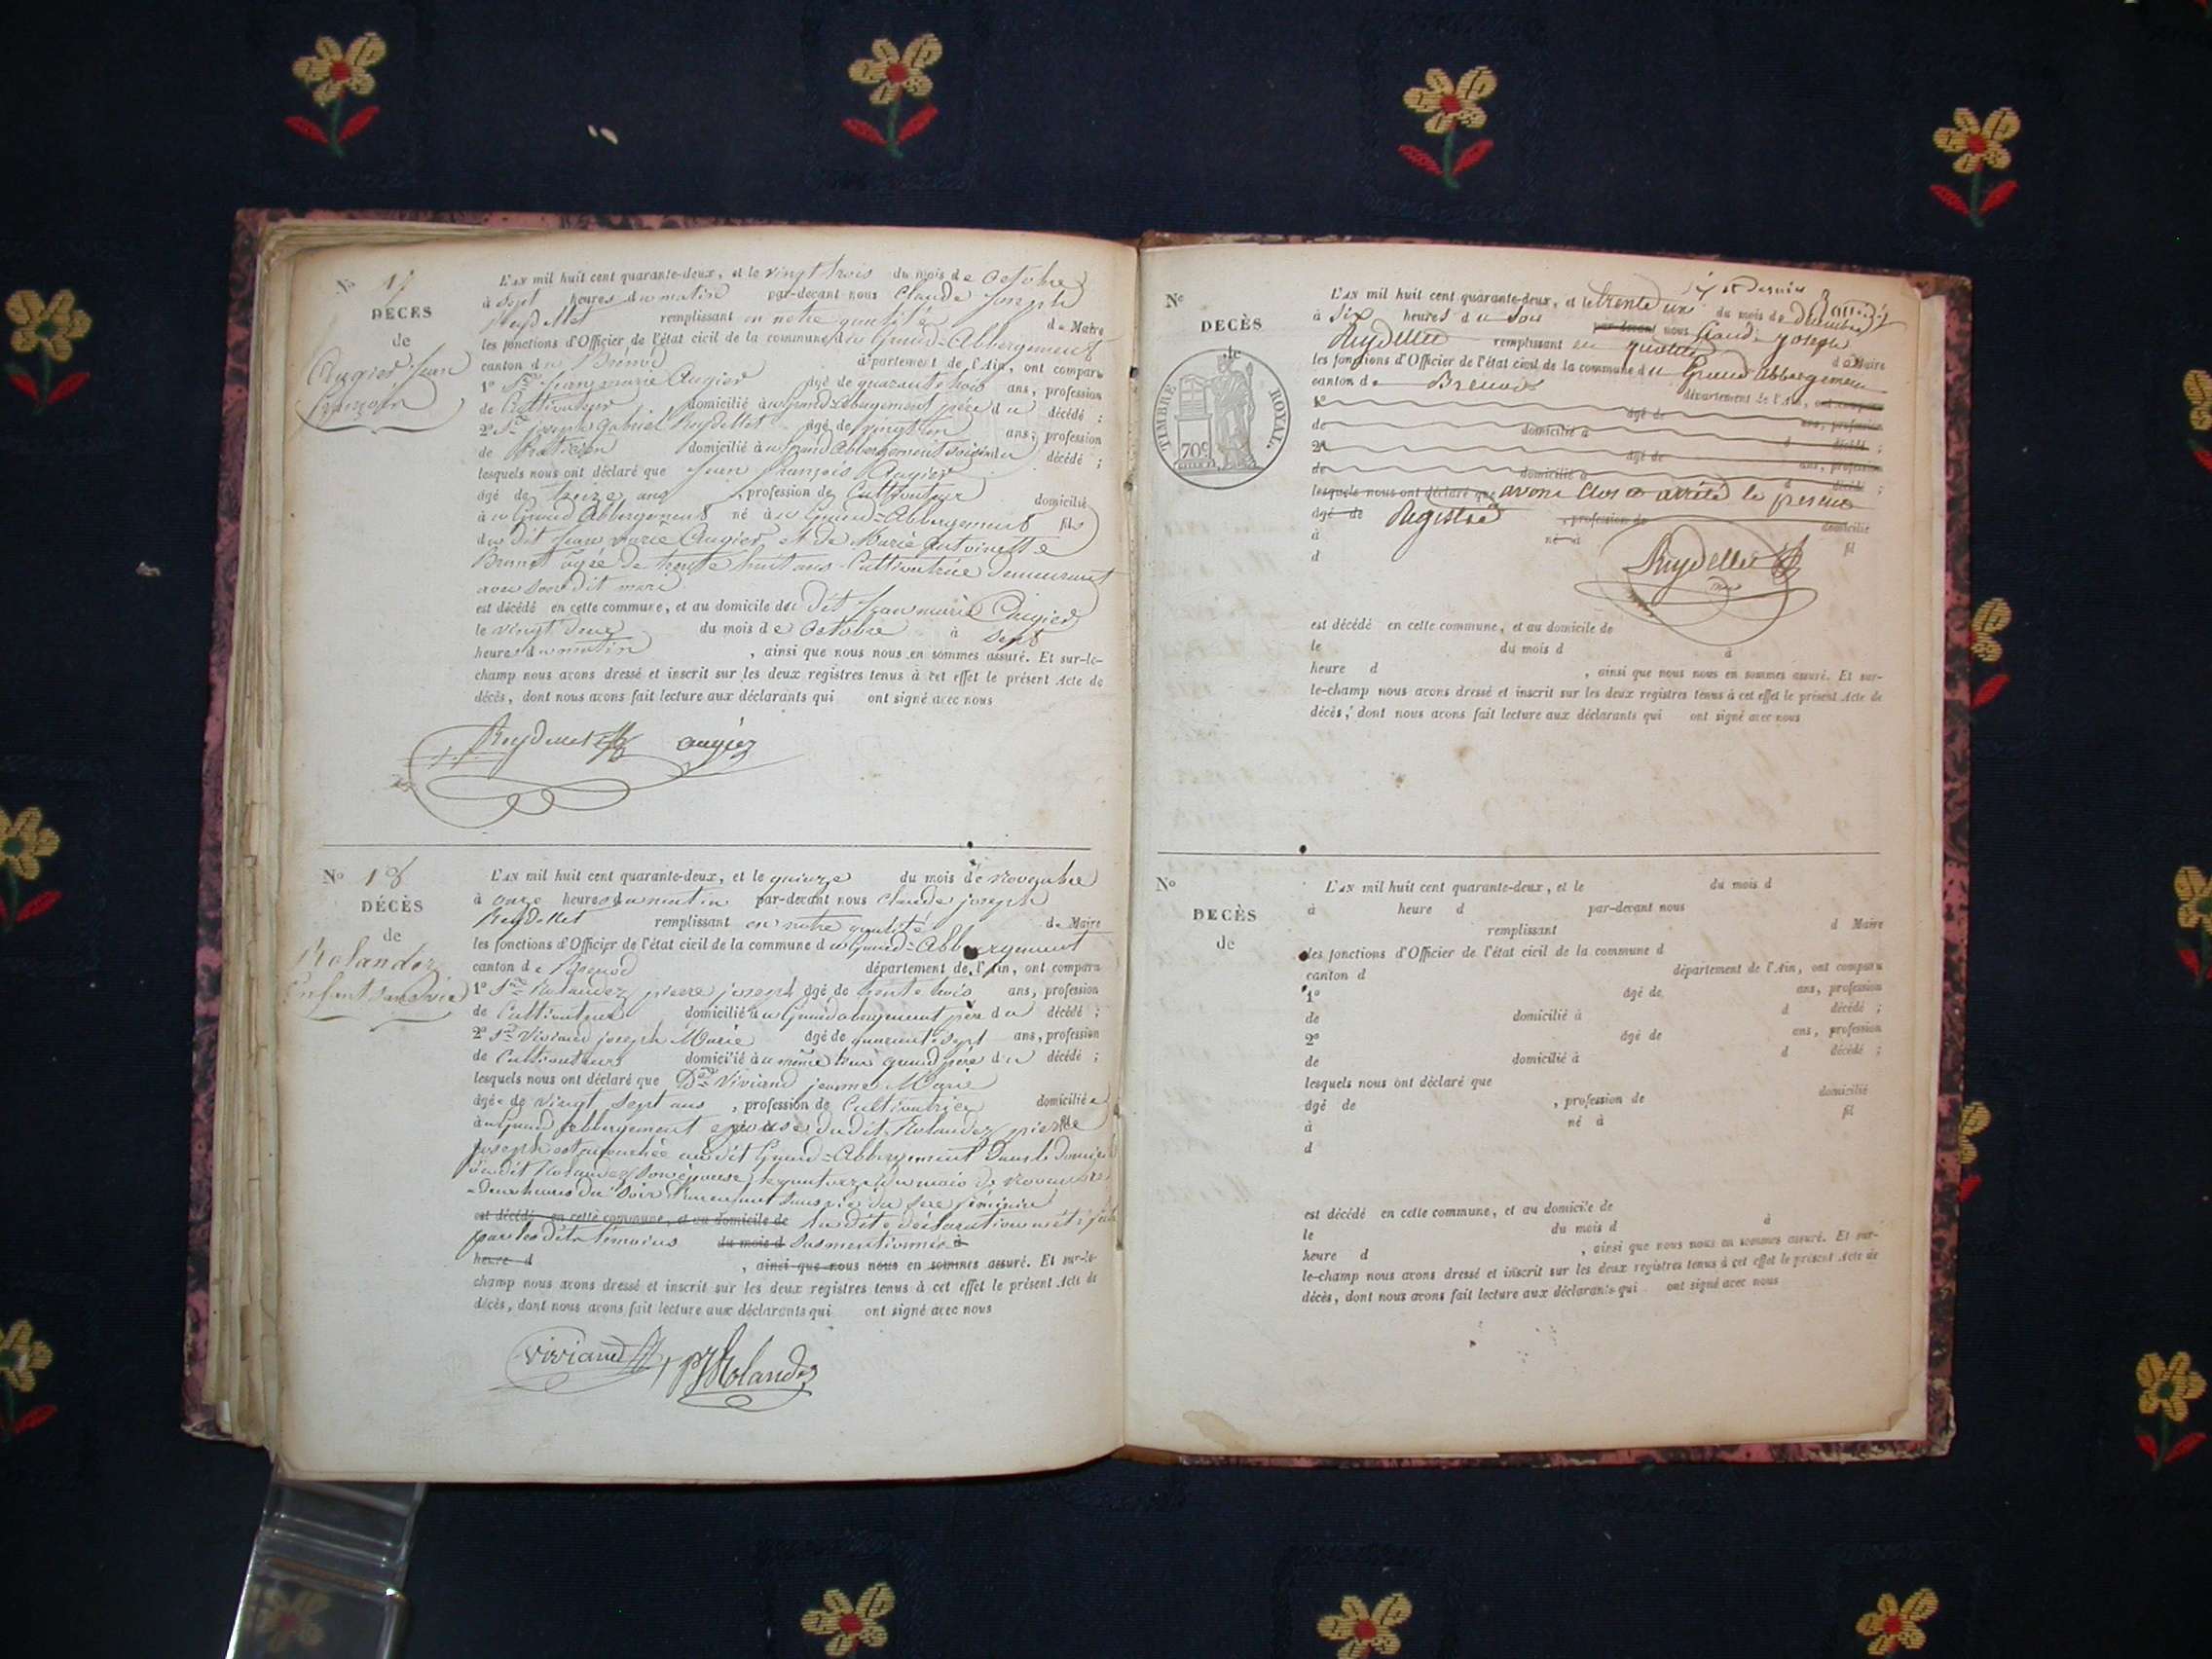 No 17
DÉCÈS
de
Augier Jean
François
L'AN mil huit cent quarante-deux, et le vingt trois du mois de octobre
à sept heures du matin par-devant nous Claude Joseph
Ruydellet remplissant en notre qualité de Maire
les fonctions d'Officier de l'état civil de la commune du Grand-Abbergement
canton de Brénod département de l'Ain, ont comparu
1º Sr Jean marie Augier âgé de quarante trois ans, profession
de Cultivateur domicilié au Grand abbergement père du décédé ;
2º Sr joseph Gabriel Ruydellet âgé de vingt un ans, profession
de Praticien domicilié au Grand Abbergement voisin du décédé ;
lesquels nous ont déclaré que Jean François Augier
âgé de treize ans , profession de Cultivateur domicilié
au Grand Abbergement né au Grand-Abbergement fils
du dit Jean Marie Augier et de Marie Antoinette
Brunet âgée de trente huit ans Cultivatrice demeurant
avec son dit mari
est décédé en cette commune, et au domicile du dit Jean marie Augier
le vingt deux du mois de Octobre à sept
heures du matin , ainsi que nous nous en sommes assuré. Et sur-le-
champ nous avons dressé et inscrit sur les deux registres tenus à cet effet le présent Acte de
décès, dont nous avons fait lecture aux déclarants qui ont signé avec nous
Ruydellet augier
No 18
DÉCÈS
de
Rolandez
Enfant sans vie
L'AN mil huit cent quarante-deux, et le quinze du mois de Novembre
à onze heures du matin par-devant nous claude joseph
Ruydellet remplissant en notre qualité de Maire
les fonctions d'Officier de l'état civil de la commune du Grand-Abbergement
canton de Brenod département de l'Ain, ont comparu
1º Sr Rolandez pierre joseph âgé de trente trois ans, profession
de Cultivateur domicilié au Grand abbergement père du décédé ;
2º Sr Viviand joseph Marie âgé de quarante-sept ans, profession
de Cultivateurs domicilié au même lieu grand père du décédé ;
lesquels nous ont déclaré que De Viviand jeanne Marie
âgée de vingt sept ans , profession de Cultivatrice domiciliée
au Grand abbergement épouse du dit Rolandez pierre
joseph est accouchée au dit Grand-Abbergement dans le domicile
du dit Rolandez son époux le quatorze du mois de Novembre
à deux heures du soir d'un enfant sans vie du sexe féminin
est décédé en cette commune, et au domicile de la dite déclaration
par les dits témoins du mois d susmentionnés à
heure d , ainsi que nous nous en sommes assuré. Et sur-le-
champ nous avons dressé et inscrit sur les deux registres tenus à cet effet le présent Acte de
décès, dont nous avons fait lecture aux déclarants qui ont signé avec nous
viviand PJ Rolandez
No
DÉCÈS
de
TIMBRE ROYAL.
70c
et Dernier
L'AN mil huit cent quarante-deux, et le trente un du mois de décembre
à six heures du soir par-devant nous Claude joseph
Ruydellet remplissant en qualité de Maire
les fonctions d'Officier de l'état civil de la commune du Grand Abbergement
canton de Brenod département de l'Ain, ont comparu
1º âgé de ans, profession
de domicilié à d décédé ;
2º âgé de ans, profession
de domicilié à d décédé ;
lesquels nous ont déclaré que avons Clos et arrêté le présent
âgé de Registre , profession de domicilié
à né à fil
d
Ruydellet
est décédé en cette commune, et au domicile de
le du mois d à
heure d , ainsi que nous nous en sommes assuré. Et sur-
le-champ nous avons dressé et inscrit sur les deux registres tenus à cet effet le présent Acte de
décès, dont nous avons fait lecture aux déclarants qui ont signé avec nous
No
DÉCÈS
de
L'AN mil huit cent quarante-deux, et le du mois d
à heure d par-devant nous
remplissant d Maire
les fonctions d'Officier de l'état civil de la commune d
canton d département de l'Ain, ont comparu
1º âgé de ans, profession
de domicilié à d décédé ;
2º âgé de ans, profession
de domicilié à d décédé ;
lesquels nous ont déclaré que
âgé de , profession de domicilié
à né à fil
d
est décédé en cette commune, et au domicile de
le du mois d à
heure d , ainsi que nous nous en sommes assuré. Et sur-
le-champ nous avons dressé et inscrit sur les deux registres tenus à cet effet le présent Acte de
décès, dont nous avons fait lecture aux déclarants qui ont signé avec nous